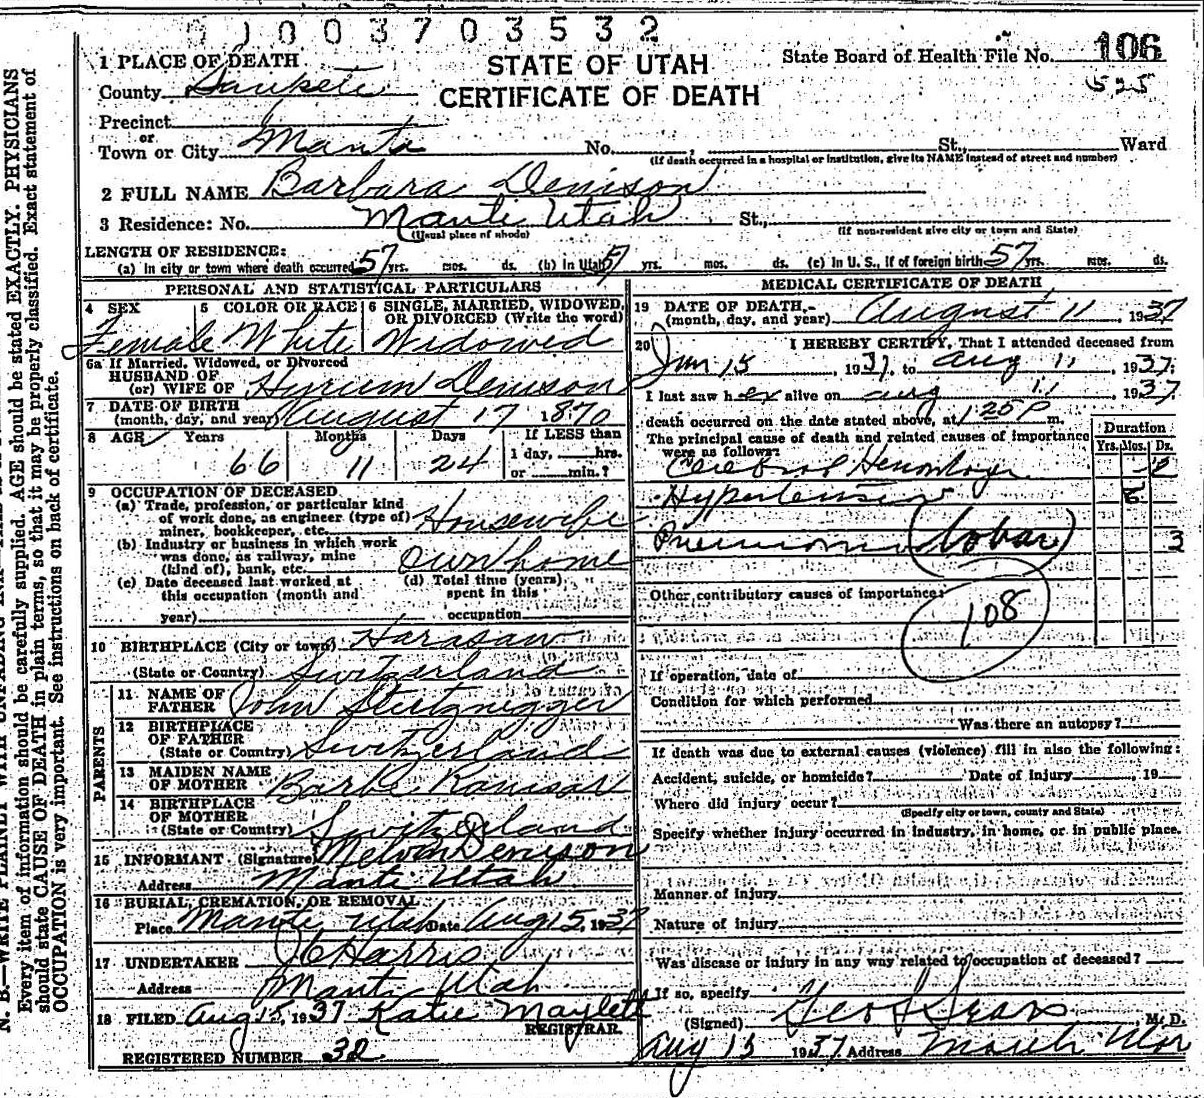 0 1 0 0 3 7 0 3 5 3 2
1 PLACE OF DEATH
STATE OF UTAH
CERTIFICATE OF DEATH
State Board of Health File No. 106
525
County Sanpete
Precinct
or
Town or City Manti No. , St., Ward
(If death occurred in a hospital or institution, give its NAME instead of street and number)
2 FULL NAME Barbara Denison
3 Residence: No. Manti Utah St.,
(Usual place of abode) (If non-resident give city or town and State)
LENGTH OF RESIDENCE:
(a) In city or town where death occurred 57 yrs. mos. ds. (b) In Utah 57 yrs. mos. ds. (c) In U. S., if of foreign birth 57 yrs. mos. ds.
PERSONAL AND STATISTICAL PARTICULARS
4 SEX 5 COLOR OR RACE 6 SINGLE, MARRIED, WIDOWED, OR DIVORCED (Write the word)
Female White Widowed
6a If Married, Widowed, or Divorced
HUSBAND OF
(or) WIFE OF Hyrum Denison
7 DATE OF BIRTH
(month, day, and year) August 17 1870
8 AGE Years Months Days If LESS than
1 day, hrs.
66 11 24 or min.?
9 OCCUPATION OF DECEASED
(a) Trade, profession, or particular kind
of work done, as engineer (type of) Housewife
miner, bookkeeper, etc.
(b) Industry or business in which work
was done, as railway, mine own home
(kind of), bank, etc.
(c) Date deceased last worked at (d) Total time (years)
this occupation (month and spent in this
year) occupation
10 BIRTHPLACE (City or town) Harasaw
(State or Country) Switzerland
PARENTS
11 NAME OF
FATHER John Sturtznegger
12 BIRTHPLACE
OF FATHER
(State or Country) Switzerland
13 MAIDEN NAME
OF MOTHER Barbe
14 BIRTHPLACE
OF MOTHER
(State or Country) Switzerland
15 INFORMANT (Signature) Melvin Denison
Address Manti Utah
16 BURIAL, CREMATION, OR REMOVAL
Place Manti Utah Date Aug 15, 1937
17 UNDERTAKER Harris
Address Manti Utah
18 FILED Aug 15, 1937 Katie Maylett
REGISTRAR.
REGISTERED NUMBER 32
MEDICAL CERTIFICATE OF DEATH
19 DATE OF DEATH,
(month, day, and year) August 11, 1937
20 I HEREBY CERTIFY, That I attended deceased from
Jun 15, 1937, to Aug 11, 1937;
I last saw her alive on aug 11, 1937
death occurred on the date stated above, at 1 25 p m.
The principal cause of death and related causes of importance
were as follows:
Duration
Yrs. Mos. Ds.
Cerebral Hemorhage 2
Hypertension 6
Pneumonia (lobar) 3
Other contributory causes of importance:
108
If operation, date of
Condition for which performed
Was there an autopsy?
If death was due to external causes (violence) fill in also the following:
Accident, suicide, or homicide? Date of injury , 19
Where did injury occur?
(Specify city or town, county and State)
Specify whether injury occurred in industry, in home, or in public place.
Manner of injury
Nature of injury
Was disease or injury in any way related to occupation of deceased?
If so, specify
(Signed) Geo L Sears M. D.
Aug 13 1937 Address Manti Utah
Every item of information should be carefully supplied. AGE should be stated EXACTLY. PHYSICIANS
should state CAUSE OF DEATH in plain terms, so that it may be properly classified. Exact statement of
OCCUPATION is very important. See instructions on back of certificate.